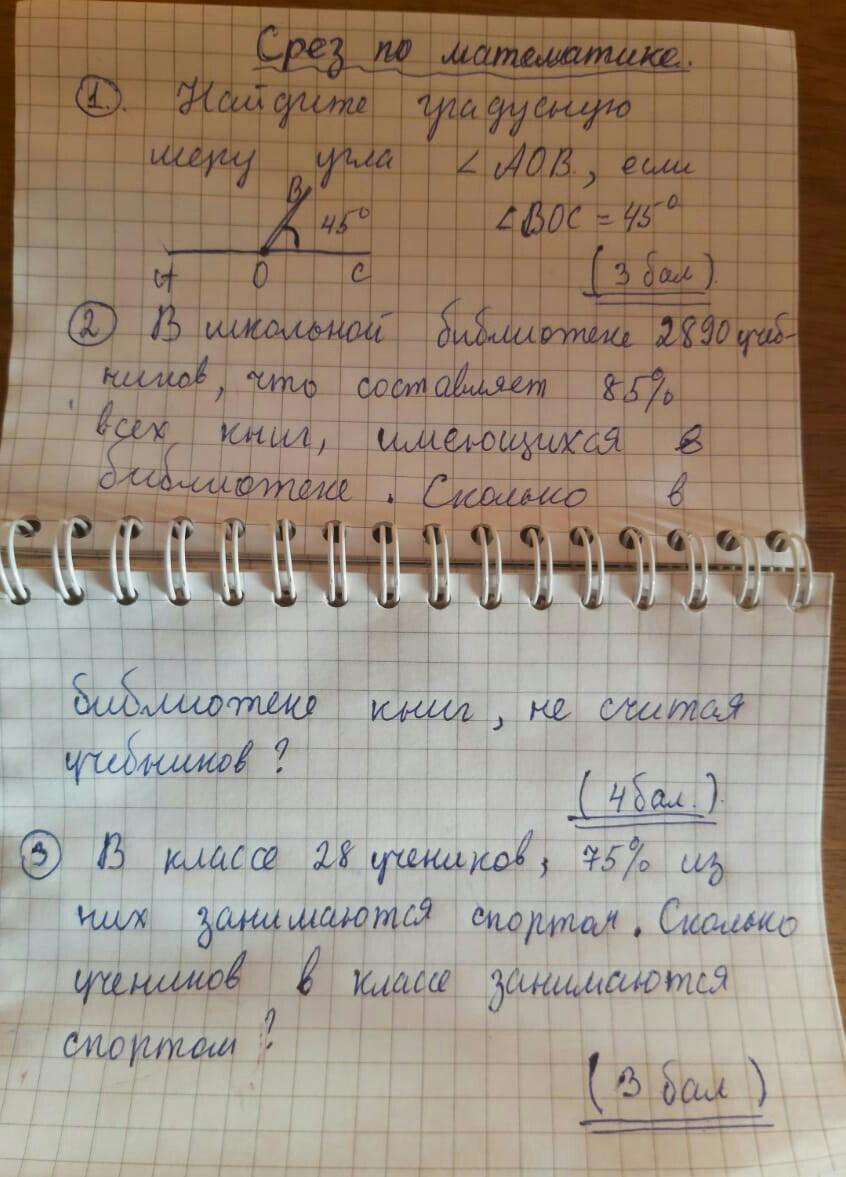 Срез по математике.
1. Найдите градусную
меру угла ∠AOB, если
B 45° ∠BOC = 45°
A O C (3 бал).
2 В школьной библиотеке 2890 учеб-
ников, что составляет 85%
всех книг, имеющихся в
библиотеке. Сколько в
библиотеке книг, не считая
учебников?
(4 бал.).
3 В классе 28 учеников, 75% из
них занимаются спортом. Сколько
учеников в классе занимаются
спортом?
(3 бал)